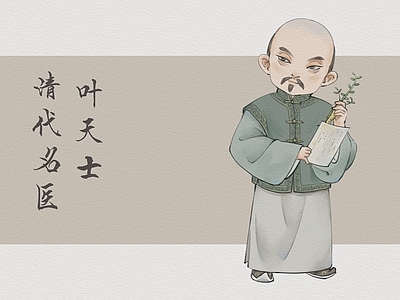 叶天士
清代名医